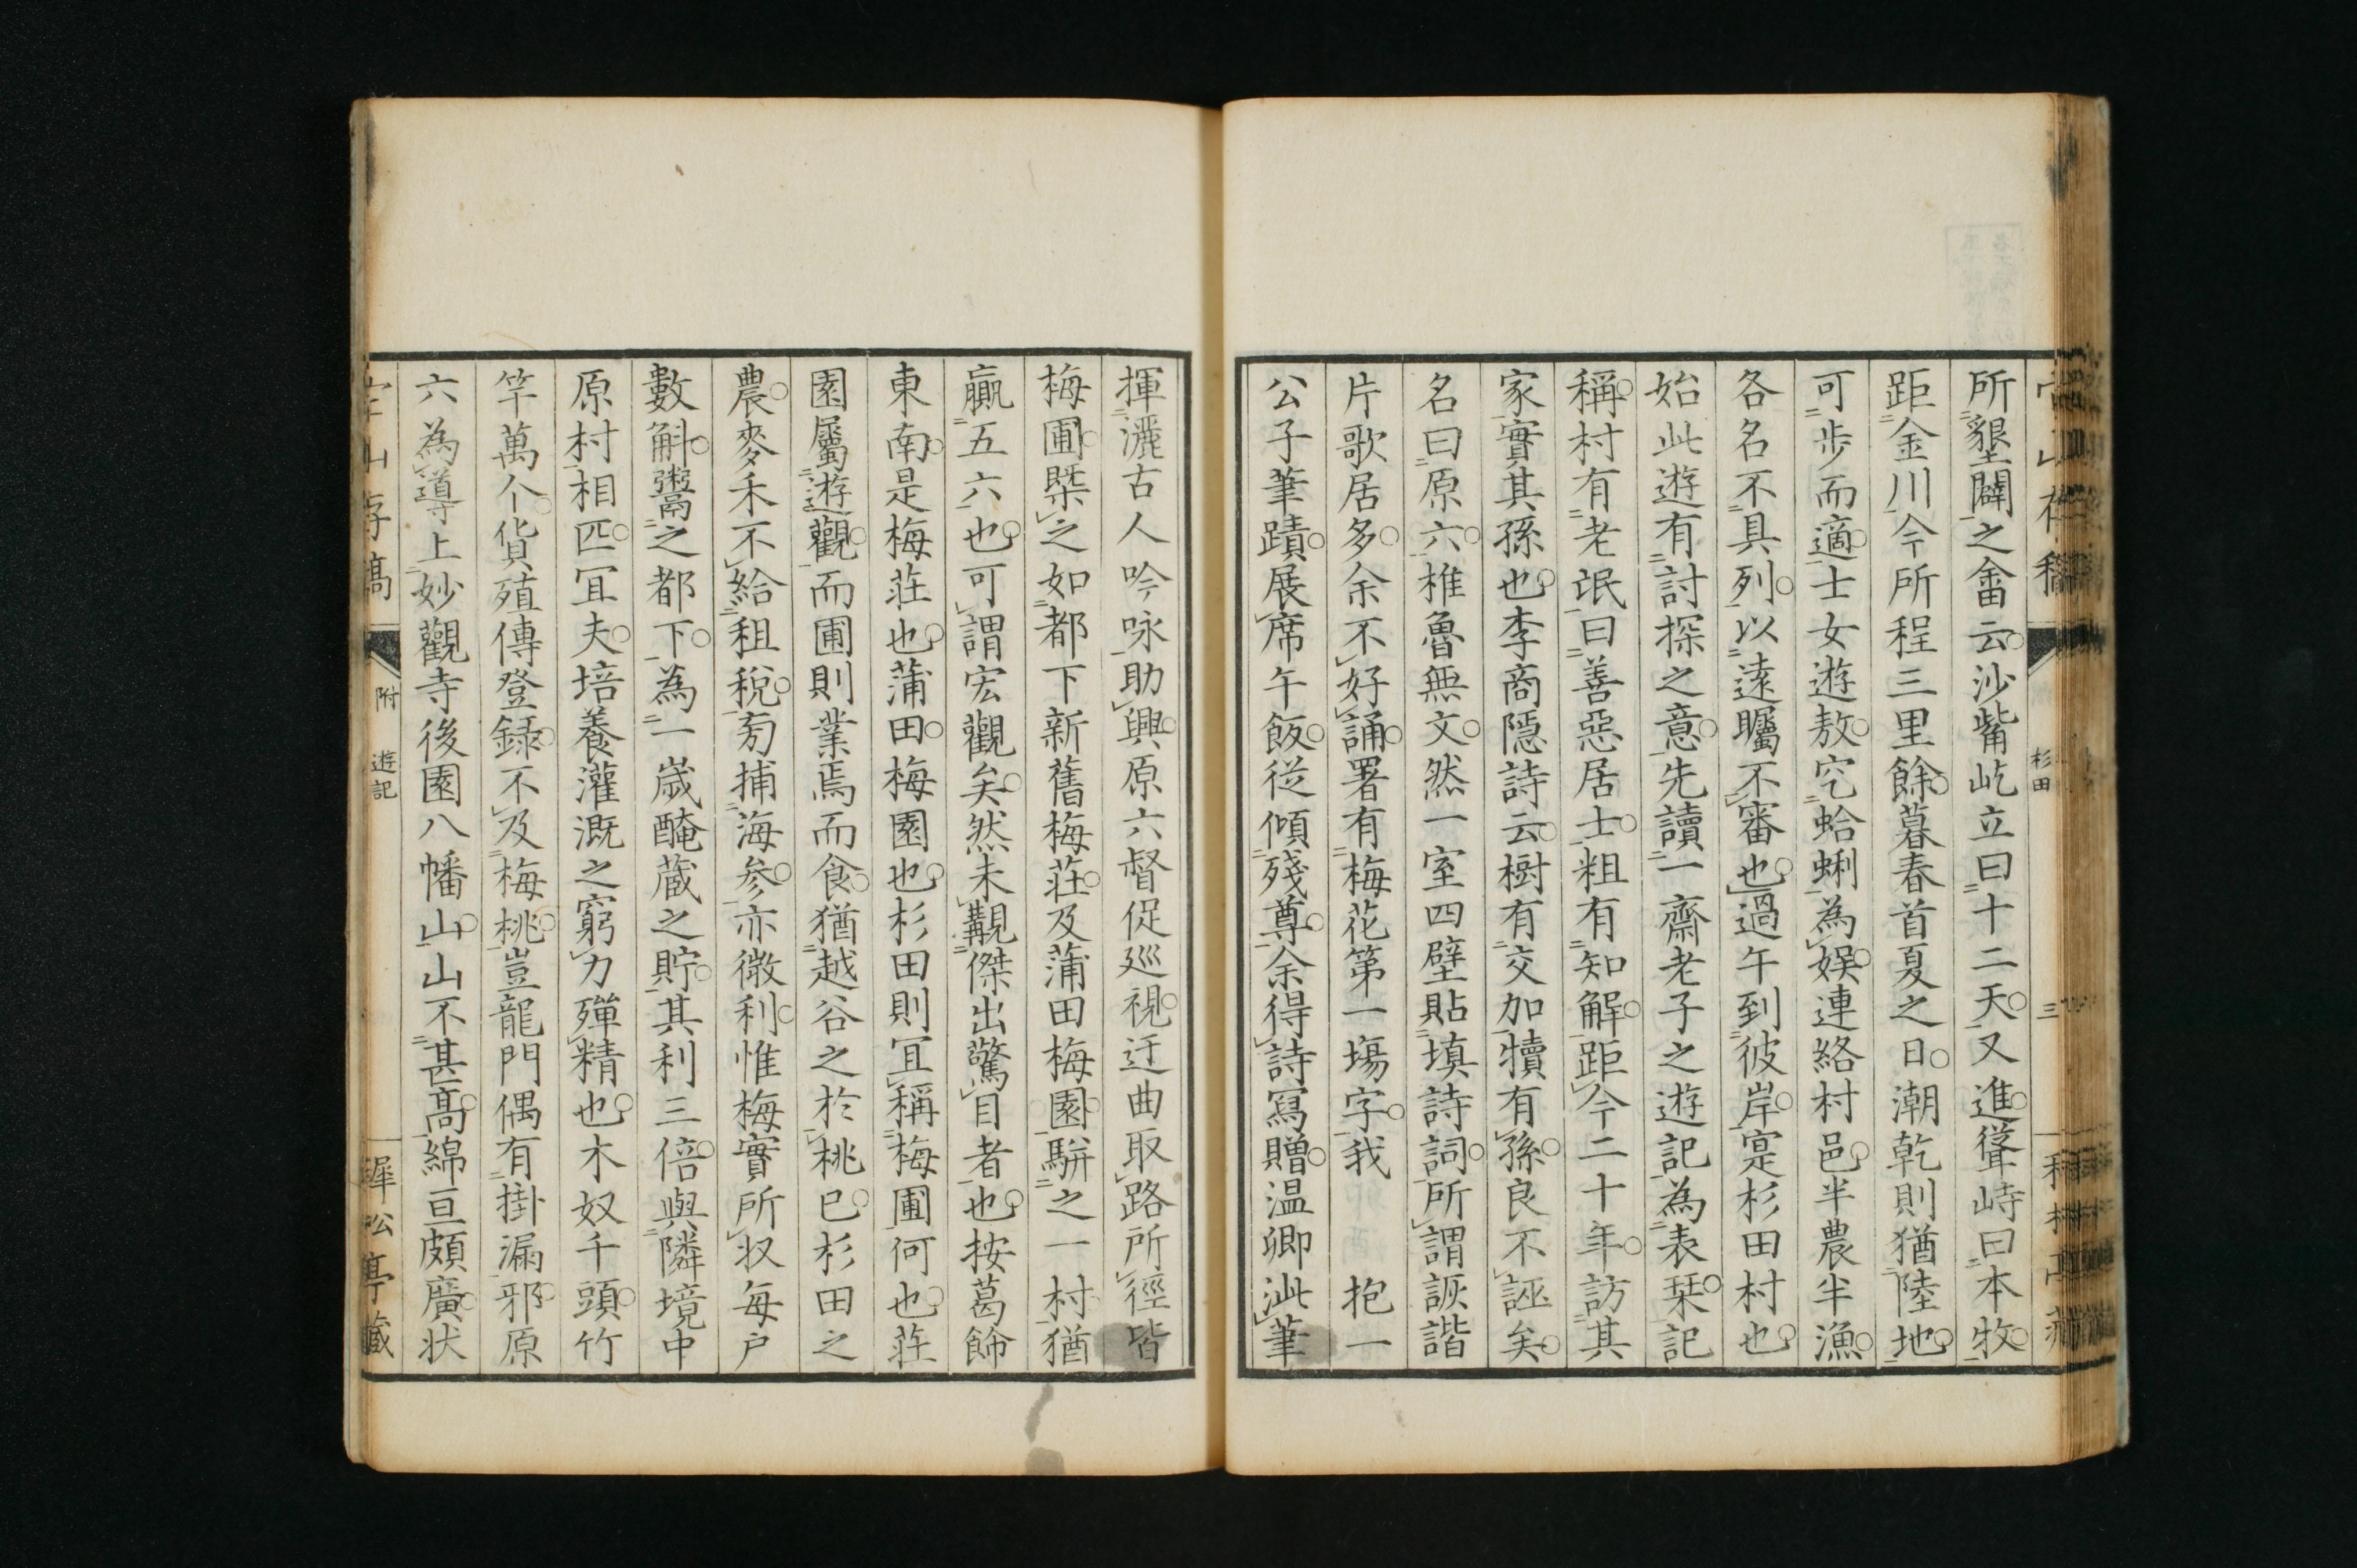 所墾闢之畬云沙觜屹立曰十二天又進聳峙曰本牧
距金川今所程三里餘暮春首夏之日潮乾則猶陸地
可步而適士女遊敖穵蛤蜊為娯連絡村邑半農半漁
各名不具列以遠矚不審也過午到彼岸寔杉田村也
始此遊有討探之意先讀一齋老子之遊記為表栞記
稱村有老氓曰善惡居士粗有知解距今二十年訪其
家實其孫也李商隱詩云樹有交加犢有孫良不誣矣
名曰原六椎魯無文然一室四壁貼塡詩詞所謂詼諧
片歌居多余不好誦署有梅花第一塲字我　抱一
公子筆蹟展席午飯従傾殘尊余得詩寫贈温卿泚筆
揮灑古人吟咏助興原六督促巡視迂曲取路所徑皆
梅圃槩之如都下新舊梅莊及蒲田梅園駢之一村猶
贏五六也可謂宏觀矣然未覩傑出驚目者也按葛飾
東南是梅莊也蒲田梅園也杉田則冝稱梅圃何也莊
園屬遊觀而圃則業焉而食猶越谷之於桃已杉田之
農麥禾不給租税旁捕海参亦微利惟梅實所収每户
數斛鬻之都下為一歳醃蔵之貯其利三倍與隣境中
原村相匹冝夫培養灌漑之窮力殫精也木奴千頭竹
竿萬个貨殖傳登録不及梅桃豈龍門偶有掛漏邪原
六為導上妙觀寺後園八幡山山不甚髙綿亘頗廣状
附　遊記
杉田　三